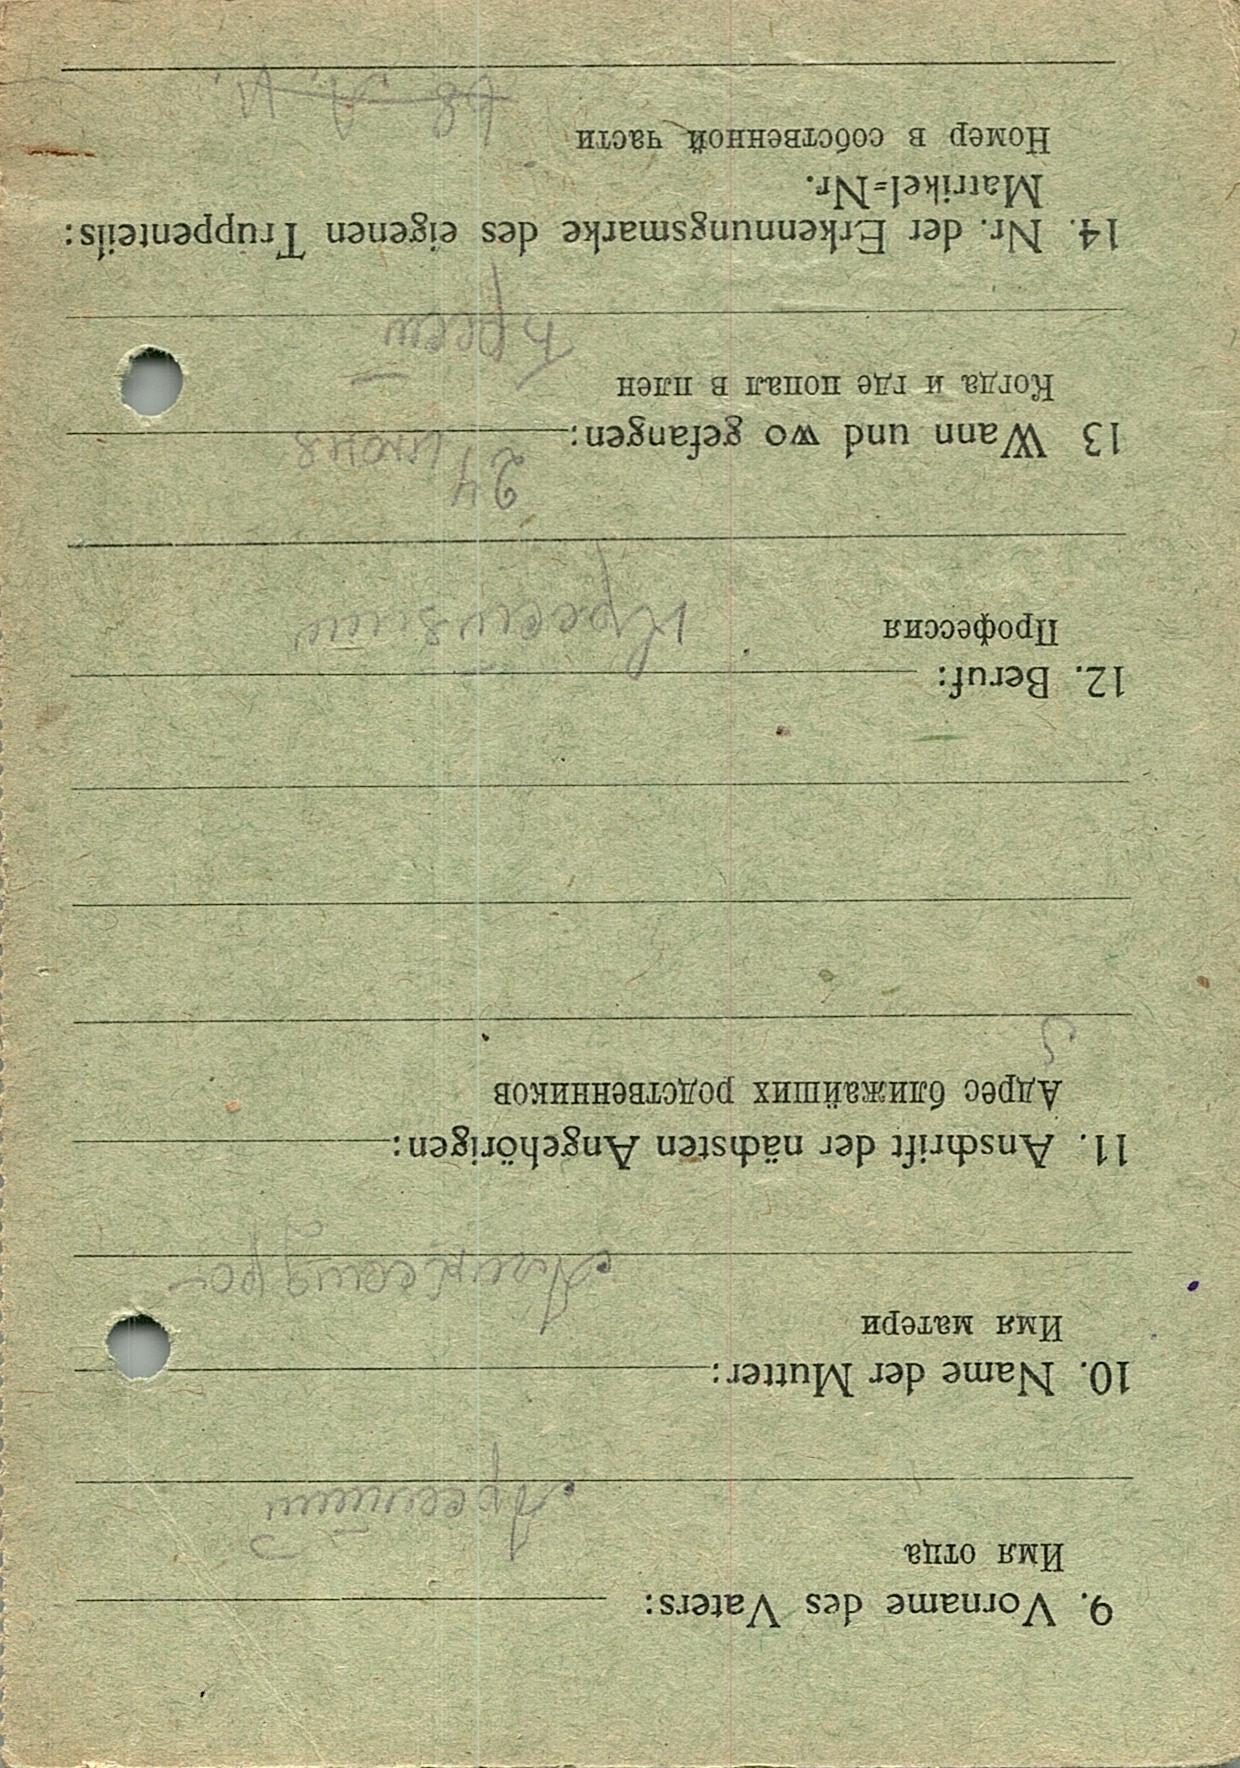 9. Vorname des Vaters:
Имя отца
10. Name der Mutter:
Имя матери
Александра
11. Anschrift der nächsten Angehörigen:
Адрес ближайших родственников
12. Beruf:
Профессия
13 Wann und wo gefangen:
24 июня
Когда и где попал в плен
Брест
14. Nr. der Erkennungsmarke des eigenen Truppenteils:
Matrikel=Nr.
Номер в собственной части